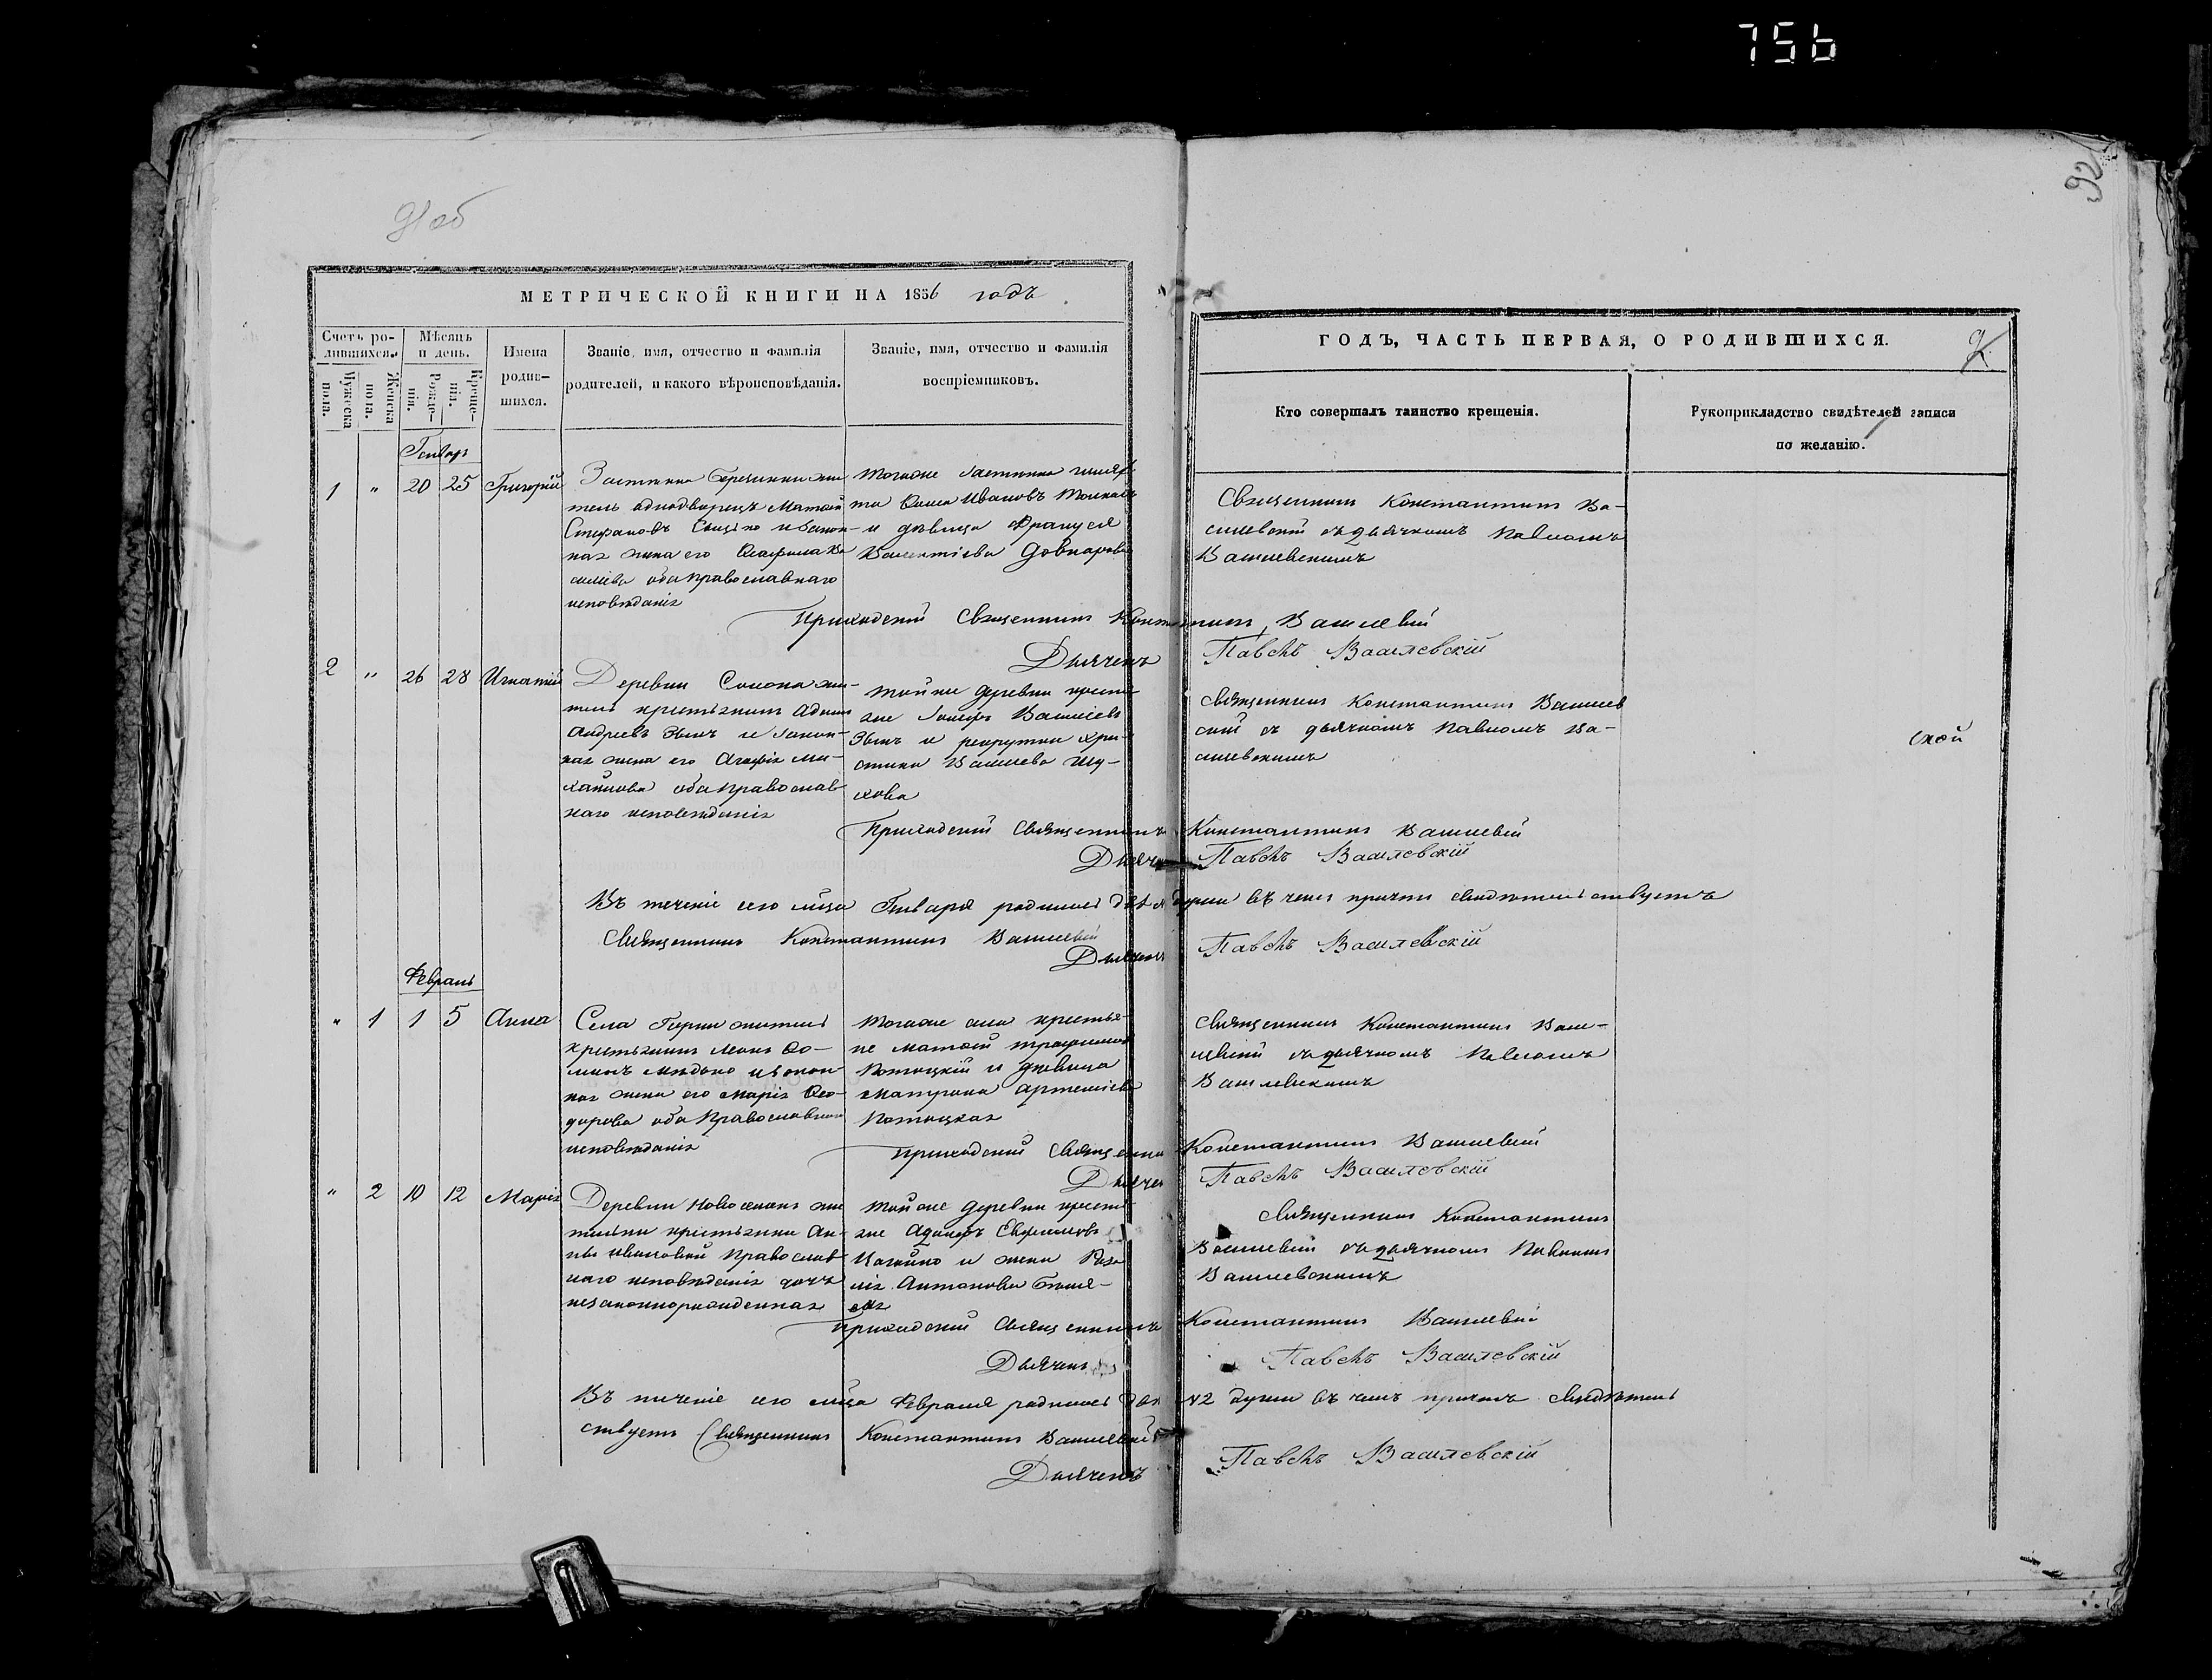 756
92
91 об
МЕТРИЧЕСКОЙ КНИГИ НА 1856 годъ
Счетъ ро-
дившихся.
Мужеска пола.
Женска пола.
Мѣсяцъ
и день.
Рожде-
нія.
Креще-
нія.
Имена
родив-
шихся.
Званіе, имя, отчество и фамилія
родителей, и какого вѣроисповѣданія.
Званіе, имя, отчество и фамилія
воспріемниковъ.
ГОДЪ, ЧАСТЬ ПЕРВАЯ, О РОДИВШИХСЯ.
Кто совершалъ таинство крещенія.
Рукоприкладство свидѣтелей записи
по желанію.
Генварь
1 " 20 25 Григорій
Застѣнка жи
тель однодворецъ Матвій
Стефановъ и закон-
ная жена его Ва
силіева оба православнаго
исповѣданія
Тогоже застѣнка
Ивановъ
и дѣвица Францися
Валентіева Довнарова
Священникъ Константинъ Ва-
силевскій съ дьячкомъ Павломъ
Василевскимъ
Приходскій Священникъ Константинъ Василевскій
Дьячекъ Павелъ Василевскій
2 " 26 28 Игнатій
Деревни жи-
тель крестьянинъ Адамъ
Андреевъ и закон-
ная жена его Агафія Ми-
хайлова оба православ-
наго исповѣданія
Той же деревни крестья
не Іосифъ Василіевъ
и рекрутка Хри-
стина Василева Шу-
хова
Священникъ Константинъ Василев
скій съ дьячкомъ Павломъ Ва-
силевскимъ
ской
Приходскій Священникъ Константинъ Василевскій
Дьячекъ Павелъ Василевскій
Въ теченіе сего мѣсца Генваря родилось двѣ м души въ чемъ причтъ свидѣтельствуетъ
Священникъ Константинъ Василевскій
Дьячекъ Павелъ Василевскій
Февраль
" 1 1 5 Анна
Села Горки житель
крестьянинъ Леонъ Ѳо-
минъ и закон
ная жена его Марія Ѳео-
дорова оба Православнаго
исповѣданія
Тогоже села крестья-
не Матвій Трофимовъ
Потоцкій и дѣвица
Матрона Артеміева
Потоцкая
Священникъ Константинъ Васи-
левскій съ дьячкомъ Павломъ
Василевскимъ
Приходскій Священникъ Константинъ Василевскій
Дьячекъ Павелъ Василевскій
" 2 10 12 Марія
Деревни Новоселокъ жи
тельки крестьянки Ан-
ны Ивановой Православ
наго исповѣданія дочь
незаконнорожденная
Той же деревни крестья
не Адамъ Евфимовъ
и жена Роза
лія Антонова
Священникъ Константинъ
Василевскій съ дьячкомъ Павломъ
Василевскимъ
Приходскій Священникъ Константинъ Василевскій
Дьячекъ Павелъ Василевскій
Въ теченіе сего мѣсца Февраля родилось двѣ ж2 души въ чемъ причтъ свидѣтель
ствуетъ Священникъ Константинъ Василевскій
Дьячекъ Павелъ Василевскій